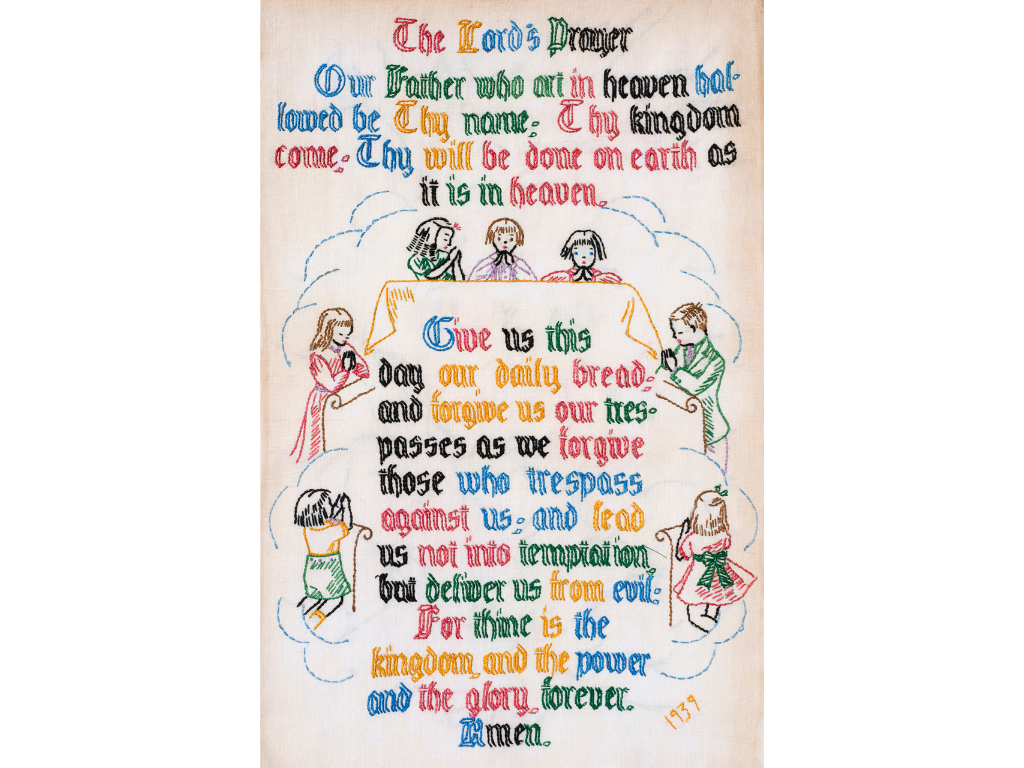 The Lord's Prayer
Our Father who art in heaven hal-
lowed be Thy name; Thy kingdom
come; Thy will be done on earth as
it is in heaven.
Give us this
day our daily bread;
and forgive us our tres-
passes as we forgive
those who trespass
against us; and lead
us not into temptation,
but deliver us from evil:
For thine is the
kingdom, and the power
and the glory, forever.
Amen.
1939